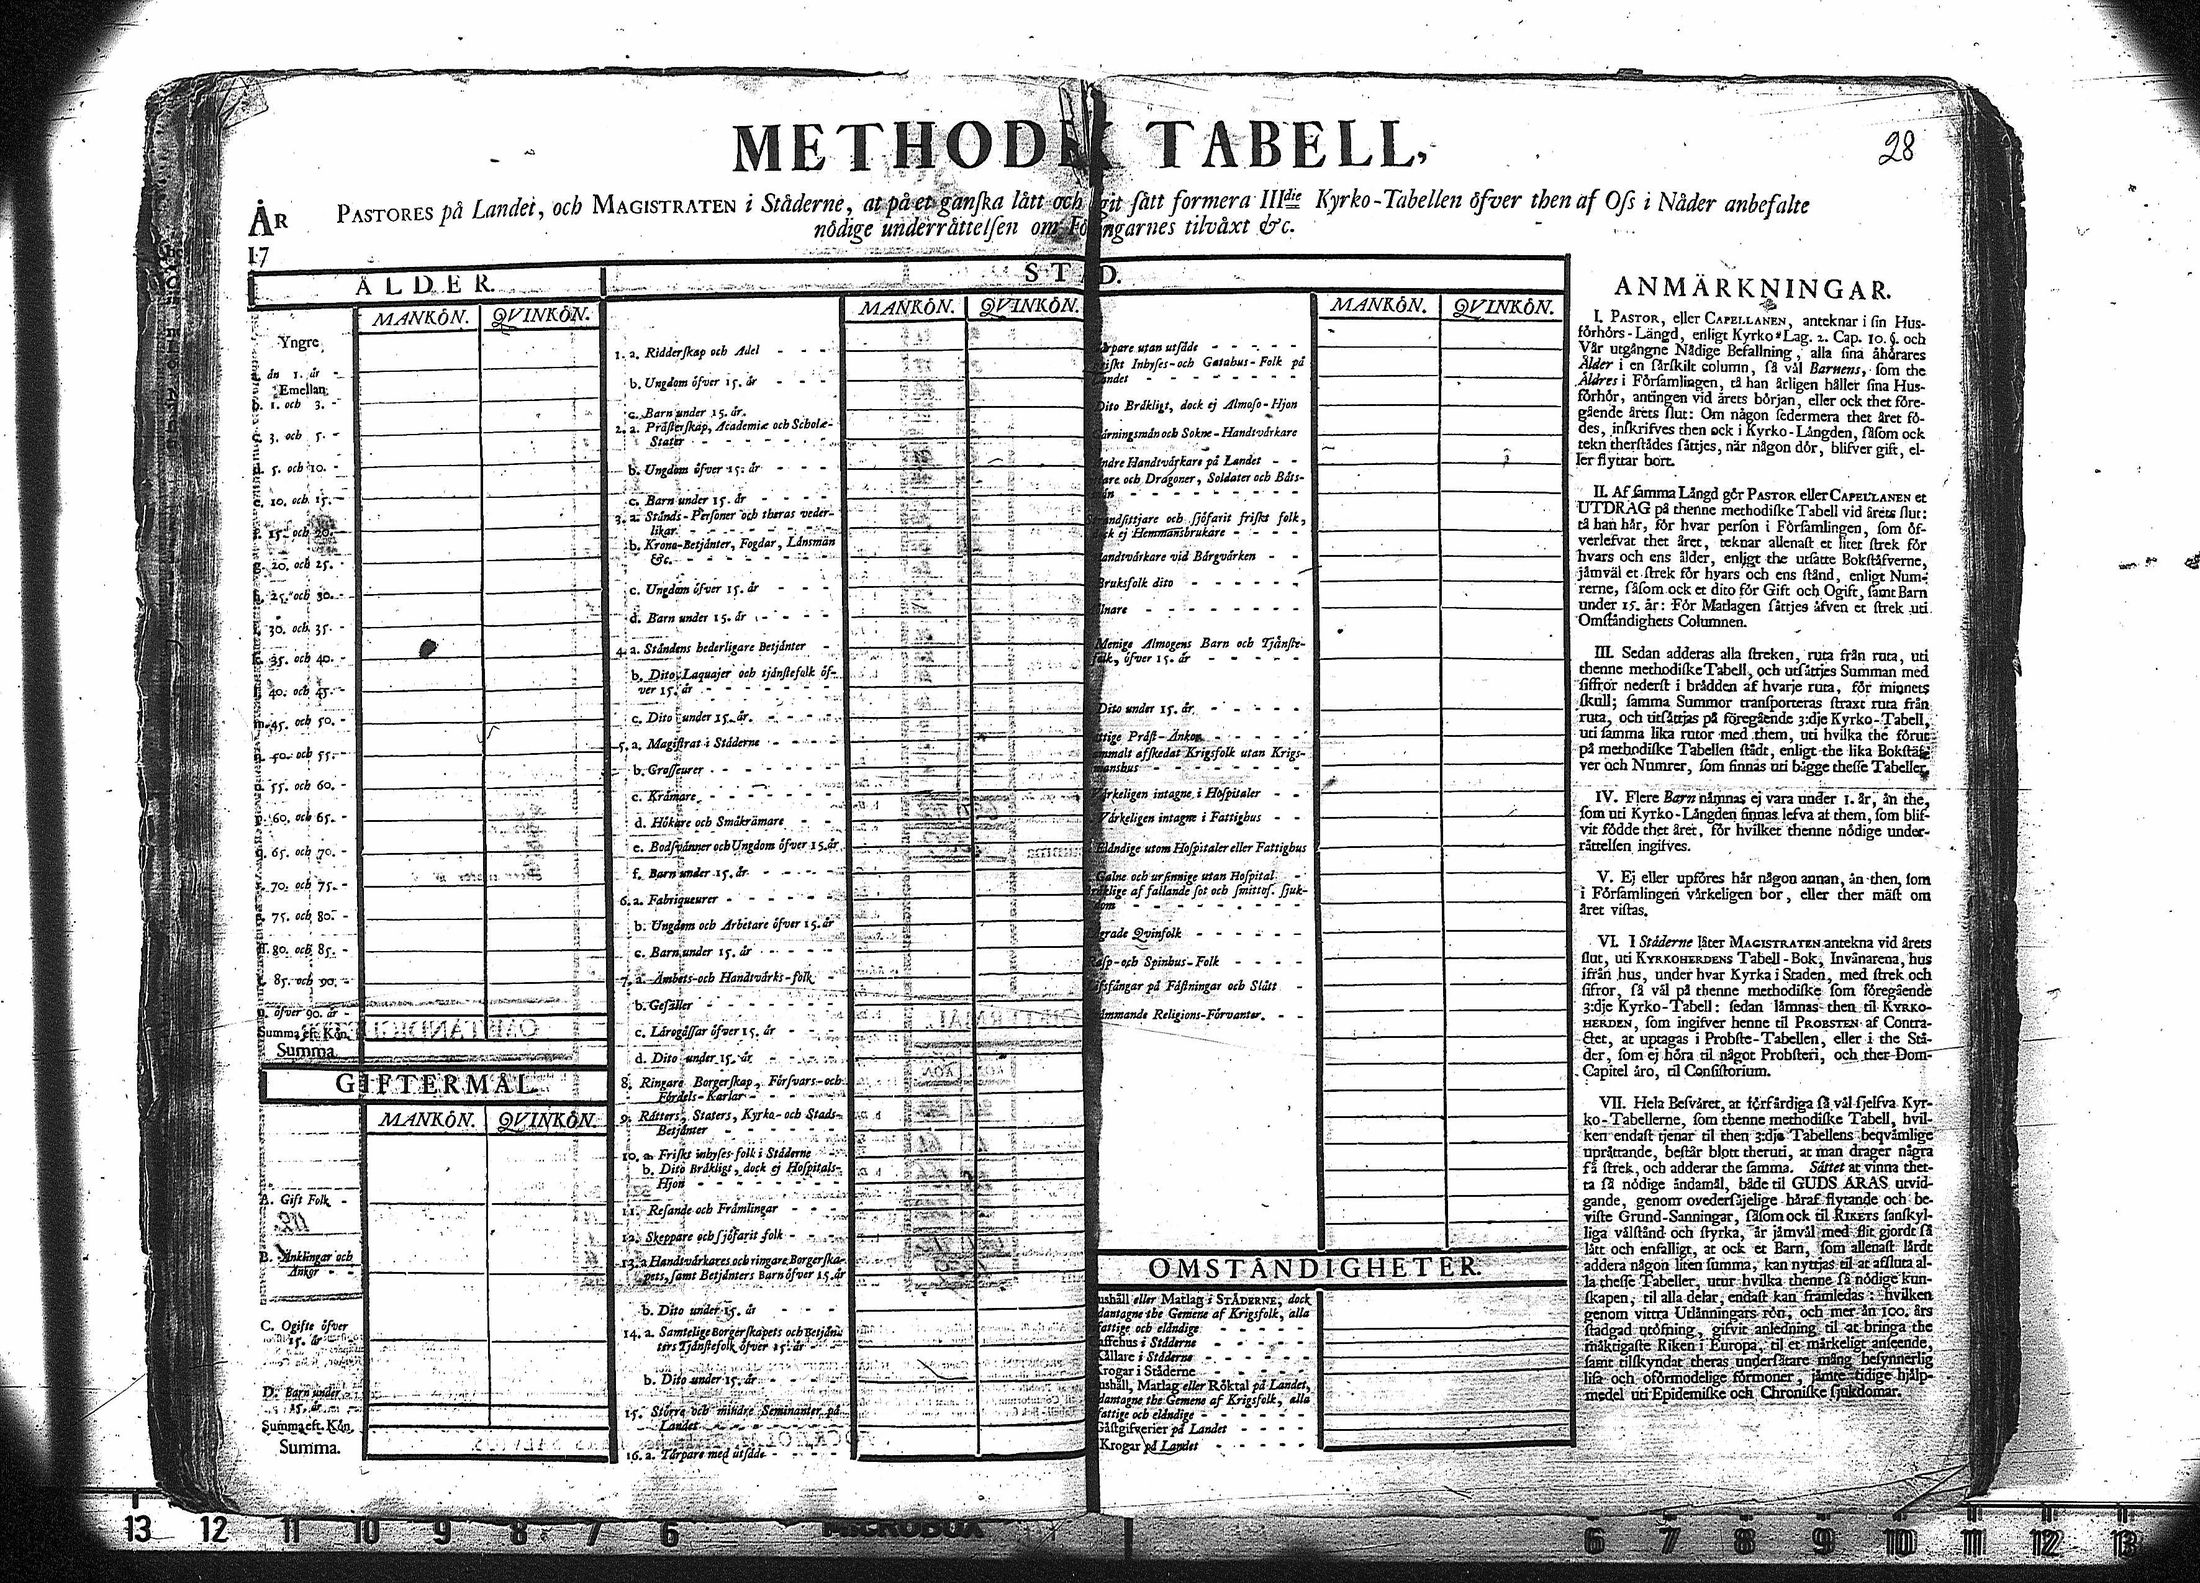 28
METHOD TABELL,
ÅR
17
PASTORES på Landet, och MAGISTRATEN i Städerne, at på et ganſka lått och git ſått formera IIIdie Kyrko-Tabellen öfver then af Oſs i Nåder anbefalte
nödige underråttelſen om ngarnes tilvåxt &c.
ÅLDER.
MANKÖN. QVINKÖN.
Yngre
ån 1. år -
Emellan
b. 1. och 3. -
c. 3. och 5. -
d. 5. och 10. -
e. 10. och 15. -
15. och 20. -
g. 20. och 25. -
h. 25. och 30. -
30. och 35. -
35. och 40. -
40. och 45. -
m. 45. och 50. -
50. och 55. -
55. och 60. -
60. och 65. -
65. och 70. -
70. och 75. -
75. och 80. -
80. och 85. -
85. och 90. -
öfver 90. år -
Summa eft. Kön.
Summa.
GIFTERMÅL.
MANKÖN. QVINKÖN.
A. Gift Folk -
B. Änklingar och
Änkor - -
C. Ogifte öfver
15. år
D. Barn under
15. år
Summa eft. Kön.
Summa.
ST D.
MANKÖN. QVINKÖN.
1. a. Ridderſkap och Adel - - -
b. Ungdom öfver 15. år - - -
c. Barn under 15. år.
2. a. Pråſterſkap, Academiæ och Scholæ-
Stater - - - - -
b. Ungdom öfver 15. år - - -
c. Barn under 15. år - - -
3. a. Stånds-Perſoner och theras veder-
likar - - - - -
b. Krono-Betjånter, Fogdar, Lånsmån
&c. - - - - -
c. Ungdom öfver 15. år - - -
d. Barn under 15. år - - -
4. a. Ståndens hederligare Betjånter -
b. Dito, Laquajer och tjånſtefolk öf-
ver 15. år - - - - -
c. Dito under 15. år. - - - -
5. a. Magiſtrat i Ståderne - - -
b. Groſſeurer - - - - -
c. Kråmare - - - - -
d. Hökare och Småkråmare - -
e. Bodſvånner och Ungdom öfver 15. år
f. Barn under 15. år - - - -
6. a. Fabriqueurer - - - - -
b. Ungdom och Arbetare öfver 15. år
c. Barn under 15. år - - - -
7. a. Ämbets-och Handtvårks-folk -
b. Geſåller - - - - -
c. Lårogåſſar öfver 15. år - - -
d. Dito under 15. år - - - -
8. Ringare Borgerſkap, Förſvars-och
Fördels-Karlar - - - -
9. Råtters, Staters, Kyrko-och Stads-
Betjånter - - - - -
10. a. Friſkt inhyſes folk i Ståderne -
b. Dito Bråkligt, dock ej Hoſpitals-
Hjon - - - - -
11. Reſande och Fråmlingar - - -
12. Skeppare och ſjöfarit folk - - -
13. a Handtvårkares och ringare Borgerſka-
pets, ſamt Betjånters Barn öfver 15. år
b. Dito under 15. år - - -
14. a. Samtelige Borgerſkapets och Betjån-
ters Tjånſtefolk öfver 15. år - -
b. Dito under 15. år - - -
15. Större och mindre Seminanter på
Landet - - - -
16. a. Torpare med utſåde - - -
MANKÖN. QVINKÖN.
rpare utan utſåde - - - - -
riſkt Inhyſes-och Gatuhus-Folk på
Landet - - - - - - -
Dito Bråkligt, dock ej Almoſo-Hjon
årningsmån och Sokne-Handtvårkare
Andre Handtvårkare på Landet - -
are och Dragoner, Soldater och Båts-
mån - - - - - - -
trandſittjare och ſjöfarit friſkt folk,
ock ej Hemmansbrukare - - - -
Handtvårkare vid Bårgvårken - -
Bruksfolk dito - - - - - -
lnare - - - - - - -
Menige Almogens Barn och Tjånſte-
folk, öfver 15. år - - - - -
Dito under 15. år - - - - -
attige Pråſt-Änkor - - - - -
ammalt afſkedat Krigsfolk utan Krigs-
manshus - - - - - - -
Vårkeligen intagne i Hoſpitaler - -
Vårkeligen intagne i Fattighus - -
Elåndige utom Hoſpitaler eller Fattighus
Galne och urſinnige utan Hoſpital -
råklige af fallande ſot och ſmittoſ. ſjuk-
dom - - - - - - -
ågrade Qvinfolk - - - - -
Raſp-och Spinhus-Folk - - - -
Lifsfångar på Fåſtningar och Slått -
råmmande Religions-Förvanter. - -
OMSTÅNDIGHETER.
ushåll eller Matlag i STÅDERNE, dock
dantagne the Gemene af Krigsfolk, alla
fattige och elåndige - - - - -
affehus i Ståderne - - - - -
Kållare i Ståderne - - - - -
Krogar i Ståderne - - - - -
ushåll, Matlag eller Röktal på Landet,
dantagne the Gemene af Krigsfolk, alla
fattige och elåndige - - - - -
Gåſtgifverier på Landet - - - -
Krogar på Landet - - - - -
ANMÄRKNINGAR.
I. PASTOR, eller CAPELLANEN, anteknar i ſin Hus-
förhörs-Längd, enligt Kyrko-Lag. 2. Cap. 10. §. och
Vår utgångne Nådige Befallning, alla ſina åhörares
Ålder i en ſårſkilt column, ſå vål Barnens, ſom the
Äldres i Förſamlingen, tå han årligen håller ſina Hus-
förhör, antingen vid årets början, eller ock thet före-
gående årets ſlut: Om någon ſedermera thet året fö-
des, inſkrifves then ock i Kyrko-Långden, ſåſom ock
tekn therſtådes ſåttjes, når någon dör, blifver gift, el-
ler flyttar bort.
II. Af ſamma Långd gör PASTOR eller CAPELLANEN et
UTDRAG på thenne methodiſke Tabell vid årets ſlut:
tå han hår, för hvar perſon i Förſamlingen, ſom öf-
verlefvat thet året, teknar allenaſt et litet ſtrek för
hvars och ens ålder, enligt the utſatte Bokſtåfverne,
jåmvål et ſtrek för hvars och ens ſtånd, enligt Num-
rerne, ſåſom ock et dito för Gift och Ogift, ſamt Barn
under 15. år: För Matlagen ſåttjes åfven et ſtrek uti
Omſtåndighets Columnen.
III. Sedan adderas alla ſtreken, ruta från ruta, uti
thenne methodiſke Tabell, och utſåttjes Summan med
ſiffror nederſt i brådden af hvarje ruta, för minnets
ſkull; ſamma Summor tranſporteras ſtraxt ruta från
ruta, och utſåttjas på föregående 3:dje Kyrko-Tabell,
uti ſamma lika rutor med them, uti hvilka the förut
på methodiſke Tabellen ſtådt, enligt the lika Bokſtåf-
ver och Numrer, ſom finnas uti bågge theſſe Tabeller.
IV. Flere Barn nåmnas ej vara under 1. år, ån the,
ſom uti Kyrko-Långden finnas lefva at them, ſom blif-
vit födde thet året, för hvilket thenne nödige under-
råttelſen ingifves.
V. Ej eller upföres hår någon annan, ån then, ſom
i Förſamlingen vårkeligen bor, eller ther måſt om
året viſtas.
VI. I Ståderne låter MAGISTRATEN antekna vid årets
ſlut, uti KYRKOHERDENS Tabell-Bok, Invånarena, hus
ifrån hus, under hvar Kyrka i Staden, med ſtrek och
ſifror, ſå vål på thenne methodiſke ſom föregående
3:dje Kyrko-Tabell: ſedan låmnas then til KYRKO-
HERDEN, ſom ingifver henne til PROBSTEN af Contra-
ctet, at uptagas i Probſte-Tabellen, eller i the Stå-
der, ſom ej höra til något Probſteri, och ther Dom-
Capitel åro, til Conſiſtorium.
VII. Hela Beſvåret, at förfårdiga ſå vål ſjelfva Kyr-
ko-Tabellerne, ſom thenne methodiſke Tabell, hvil-
ken endaſt tjenar til then 3:dje Tabellens beqvåmlige
upråttande, beſtår blott theruti, at man drager några
få ſtrek, och adderar the ſamma. Såttet at vinna thet-
ta ſå nödige åndamål, både til GUDS ÄRAS utvid-
gande, genom ovederſåjelige håraf flytande och be-
viſte Grund-Sanningar, ſåſom ock til RIKETS ſanſkyl-
liga vålſtånd och ſtyrka, år jåmvål med flit gjordt ſå
lått och enfalligt, at ock et Barn, ſom allenaſt lårdt
addera någon liten ſumma, kan nyttjas til at afſluta al-
la theſſe Tabeller, utur hvilka thenne ſå nödige kun-
ſkapen, til alla delar, endaſt kan framledas: hvilken
genom vittra Utlånningars rön, och mer ån 100. års
ſtadgad utöfning, gifvit anledning til at bringa the
måktigaſte Riken i Europa, til et mårkeligt anſeende,
ſamt tilſkyndat theras underſåtare mång beſynnerlig
liſa och oförmodelige förmoner, jåmte tidige hjålp-
medel uti Epidemiſke och Chroniſke ſjukdomar.
13 12 11 10 9 8 7 6 MICROBOX 6 7 8 9 10 11 12 13